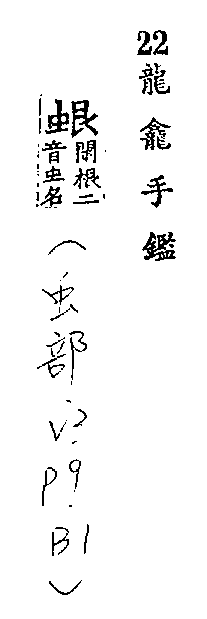 22龍龕手鑑
䖟閑根二音虫名(虫部 V2. P9. B1)